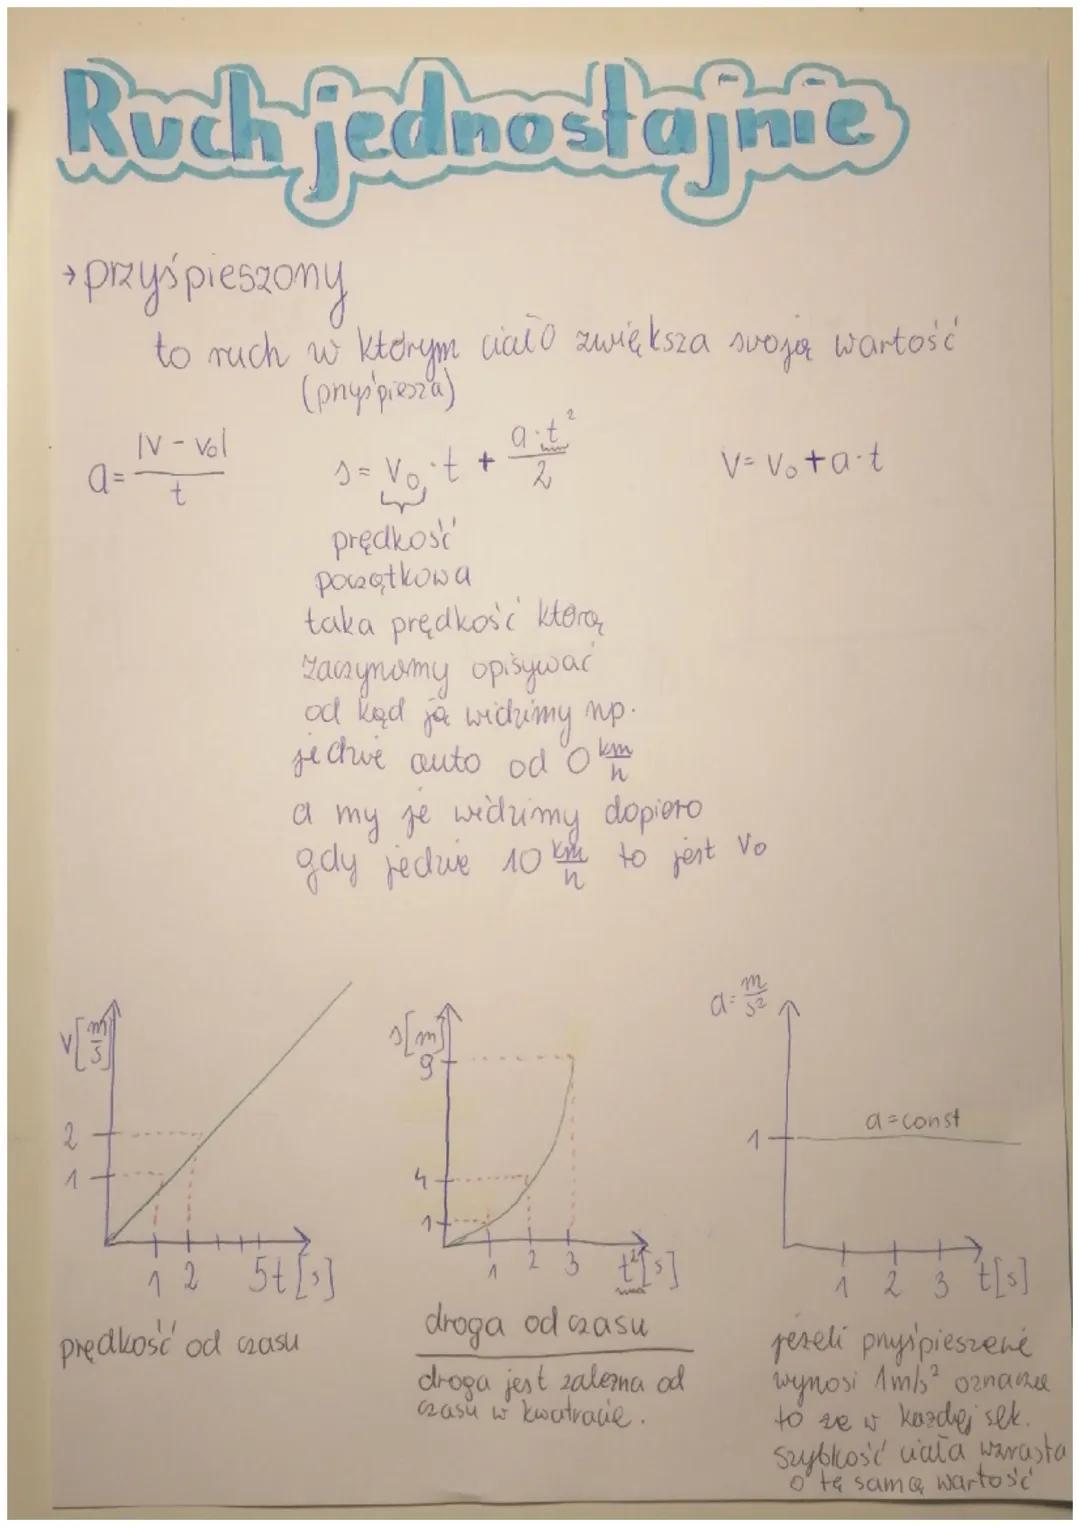 Ruch jednostajnie
→ przyśpieszony
to ruch w którym ciało zwiększa swoją wartość
(przyśpiesza)
a = |V - V₀| / t
s = V₀ · t + a · t² / 2
V = V₀ + a · t
prędkość
początkowa
taka prędkość którą
zaczynamy opisywać
od kąd ją widzimy np.
jedzie auto od 0 km/h
a my je widzimy dopiero
gdy jedzie 10 km/h to jest V₀
V [m/s]
2
1
1 2 5 t[s]
prędkość od czasu
s[m]
9
4
1
1 2 3 t²[s]
droga od czasu
droga jest zależna od
czasu w kwatracie.
a = m/s²
a = const
1
1 2 3 t[s]
jeżeli przyśpieszenie
wynosi 1m/s² oznacza
to że w każdej sek.
szybkość ciała wzrasta
o tę samą wartość